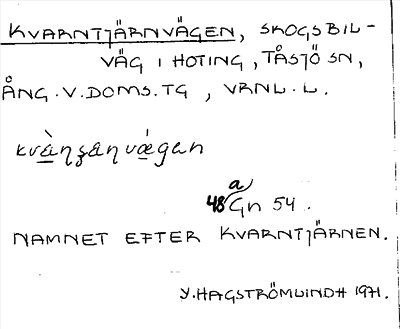 KVARNTJÄRNVÄGEN, SKOGSBIL-
VÄG I HOTING, TÅSJÖ SN,
ÅNG.V.DOMS.TG, VRNL.L.
kvàŋʒaŋvægan
a
48 Gn 54.
NAMNET EFTER KVARNTJÄRNEN.
Y.HAGSTRÖMLINDH 1971.